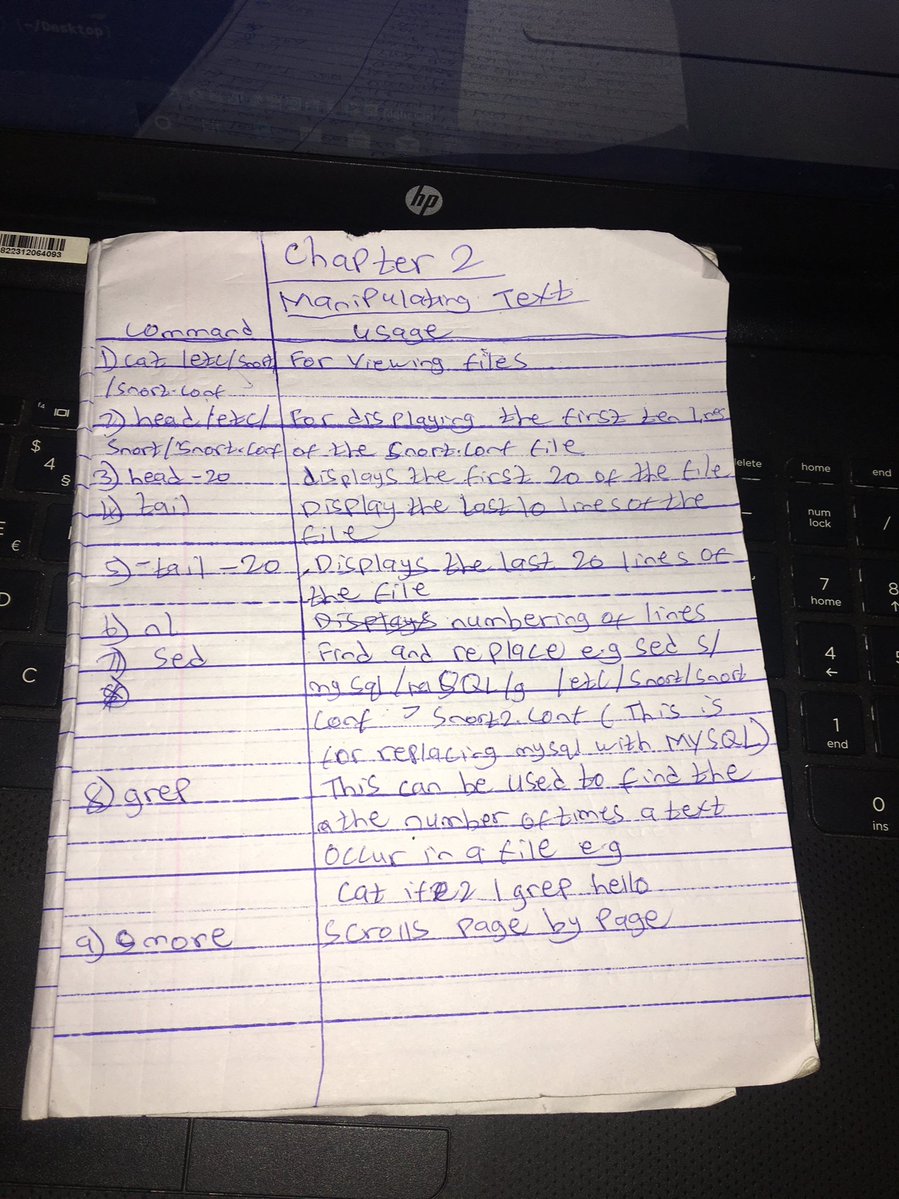 ~/Desktop
hp
822312064093
Chapter 2
Manipulating Text
Command usage
1) cat /etc/snort For viewing files
/snort.conf
2) head /etc/ For displaying the first ten lines
Snort/Snort.conf of the Snort.conf file
3) head -20 displays the first 20 of the file
4) tail Display the last 10 lines of the
file
5) -tail -20 Displays the last 20 lines of
the file
6) nl Displays numbering of lines
7) Sed Find and replace e.g sed s/
mysql/mySQL/g /etc/snort/snort
conf > Snort2.conf (This is
for replacing mysql with MYSQL)
8) grep This can be used to find the
the number of times a text
occur in a file e.g
cat | grep hello
9) more Scrolls page by page
f4
$
4
§
€
D
C
elete
home
end
num
lock
/
7
home
8
4
←
1
end
0
ins